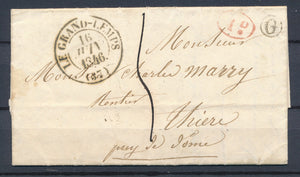 LE GRAND-LEMPS
16
JUIN
1846
(37)
1 D
G
Monsieur
Monsieur Charles marry
Rentier
thiere
puy de dome